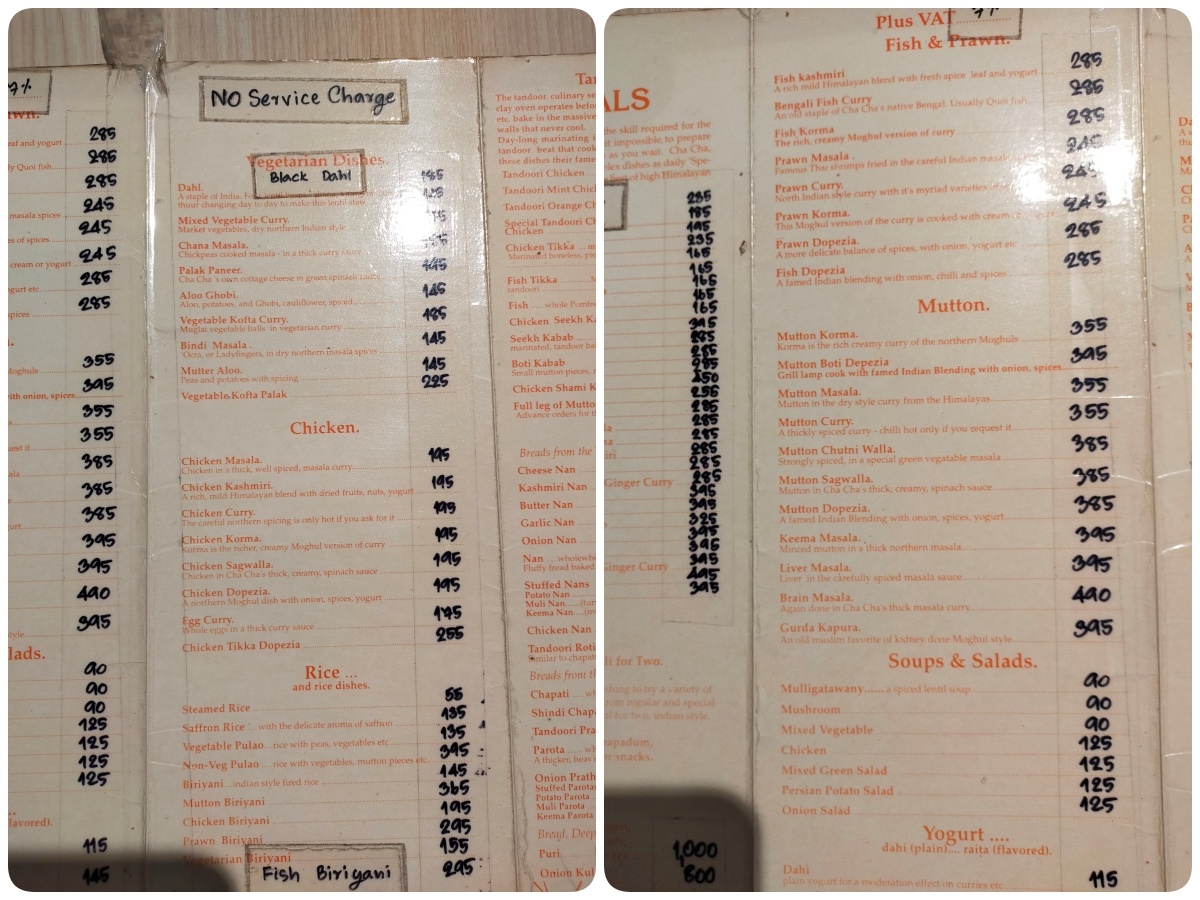 7%
285
eaf and yogurt
285
ly Quoi fish
285
245
masala spices
245
es of spices
245
cream or yogurt
285
ogurt etc.
285
spices
355
Moghuls
395
with onion, spices
355
355
uest it
385
385
385
gurt
395
395
490
395
style.
lads.
90
90
90
125
125
125
125
flavored).
115
145
NO Service Charge
Vegetarian Dishes.
Black Dahl
185
Dahl.
A staple of India.
thuur changing day to day to make this lentil stew
Mixed Vegetable Curry.
Market vegetables, dry northern Indian style
Chana Masala.
Chickpeas cooked masala - in a thick curry sauce
Palak Paneer. 195
Cha Cha's own cottage cheese in green spinach sauce
Aloo Ghobi. 145
Aloo, potatoes, and Ghobi, cauliflower, spiced
Vegetable Kofta Curry. 185
Muglai vegetable balls in vegetarian curry
Bindi Masala. 145
Ocra, or Ladyfingers, in dry northern masala spices
Mutter Aloo. 145
Peas and potatoes with spicing
225
Vegetable Kofta Palak
Chicken.
Chicken Masala. 195
Chicken in a thick, well spiced, masala curry
Chicken Kashmiri. 195
A rich, mild Himalayan blend with dried fruits, nuts, yogurt
Chicken Curry. 195
The careful northern spicing is only hot if you ask for it
Chicken Korma. 195
Korma is the richer, creamy Moghul version of curry
Chicken Sagwalla. 195
Chicken in Cha Cha's thick, creamy, spinach sauce
Chicken Dopezia. 195
A northern Moghul dish with onion, spices, yogurt
Egg Curry. 175
Whole eggs in a thick curry sauce
255
Chicken Tikka Dopezia
Rice ...
and rice dishes.
55
Steamed Rice
135
Saffron Rice ... with the delicate aroma of saffron
135
Vegetable Pulao ... rice with peas, vegetables etc
395
Non-Veg Pulao ... rice with vegetables, mutton pieces etc.
145
Biriyani ... indian style fired rice
365
Mutton Biriyani
195
Chicken Biriyani
295
Prawn Biriyani
155
Vegetarian Biriyani
295
Fish Biriyani
Tan
The tandoor, culinary se
clay oven operates befor
etc, bake in the massive
walls that never cool.
Day-long marinating i
tandoor beat that cook
these dishes their fame
Tandoori Chicken
Tandoori Mint Chic
Tandoori Orange C
Special Tandoori C
Chicken
Chicken Tikka ... m
Marinated boneless, pie
Fish Tikka
tandoori
Fish ..... whole Pomfre
Chicken Seekh K
Seekh Kabab
marinated, tandoor ba
Boti Kabab
Small mutton pieces,
Chicken Shami K
Full leg of Mutto
Advance orders for th
Breads from the
Cheese Nan
Kashmiri Nan
Butter Nan
Garlic Nan
Onion Nan
Nan ... wholewh
Fluffy fread baked
Stuffed Nans
Potato Nan
Muli Nan.....(tur
Keema Nan.....(m
Chicken Nan
Tandoori Roti
Similar to chapat
Breads from th
Chapati ... wh
Shindi Chapa
Tandoori Pra
Parota ..... wh
A thicker, heav
Onion Prath
Stuffed Parota
Potato Parota
Muli Parota
Keema Parota
Bread, Deep
Puri
Onion Kul
ALS
the skill required for the
it impossible to prepare
as you wait. Cha Cha,
lex dishes as daily "Spe-
best of high Himalayan
285
185
195
235
165
165
165
165
165
395
285
285
285
350
255
285
285
285
285
285
Ginger Curry 285
395
395
325
395
395
395
Ginger Curry 495
395
li for Two.
shing to try a variety of
from regular and special
al for two, indian style.
papadum,
or snacks.
1,000
500
Plus VAT 7%
Fish & Prawn.
285
Fish kashmiri
A rich mild Himalayan blend with fresh spice leaf and yogurt
285
Bengali Fish Curry
An old staple of Cha Cha's native Bengal. Usually Quoi fish.
285
Fish Korma
The rich, creamy Moghul version of curry
245
Prawn Masala .
Famous Thai shrimps fried in the careful Indian masala
245
Prawn Curry.
North Indian style curry with it's myriad varieties
245
Prawn Korma.
This Moghul version of the curry is cooked with cream
285
Prawn Dopezia.
A more delicate balance of spices, with onion, yogurt etc
285
Fish Dopezia
A famed Indian blending with onion, chilli and spices
Mutton.
Mutton Korma. 355
Korma is the rich creamy curry of the northern Moghuls
Mutton Boti Depezia 395
Grill lamp cook with famed Indian Blending with onion, spices
Mutton Masala. 355
Mutton in the dry style curry from the Himalayas.
Mutton Curry. 355
A thickly spiced curry - chilli hot only if you request it
Mutton Chutni Walla. 385
Strongly spiced, in a special green vegatable masala
Mutton Sagwalla. 385
Mutton in Cha Cha's thick, creamy, spinach sauce
Mutton Dopezia. 385
A famed Indian Blending with onion, spices, yogurt
Keema Masala. 395
Minced mutton in a thick northern masala
Liver Masala. 395
Liver in the carefully spiced masala sauce
Brain Masala. 490
Again done in Cha Cha's thick masala curry
Gurda Kapura. 395
An old muslim favorite of kidney done Moghul style.
Soups & Salads.
Mulligatawany...... a spiced lentil soup 90
Mushroom 90
Mixed Vegetable 90
Chicken 125
Mixed Green Salad 125
Persian Potato Salad 125
Onion Salad 125
Yogurt ....
dahi (plain).... raita (flavored).
Dahi 115
plain yogurt for a moderation effect on curries etc